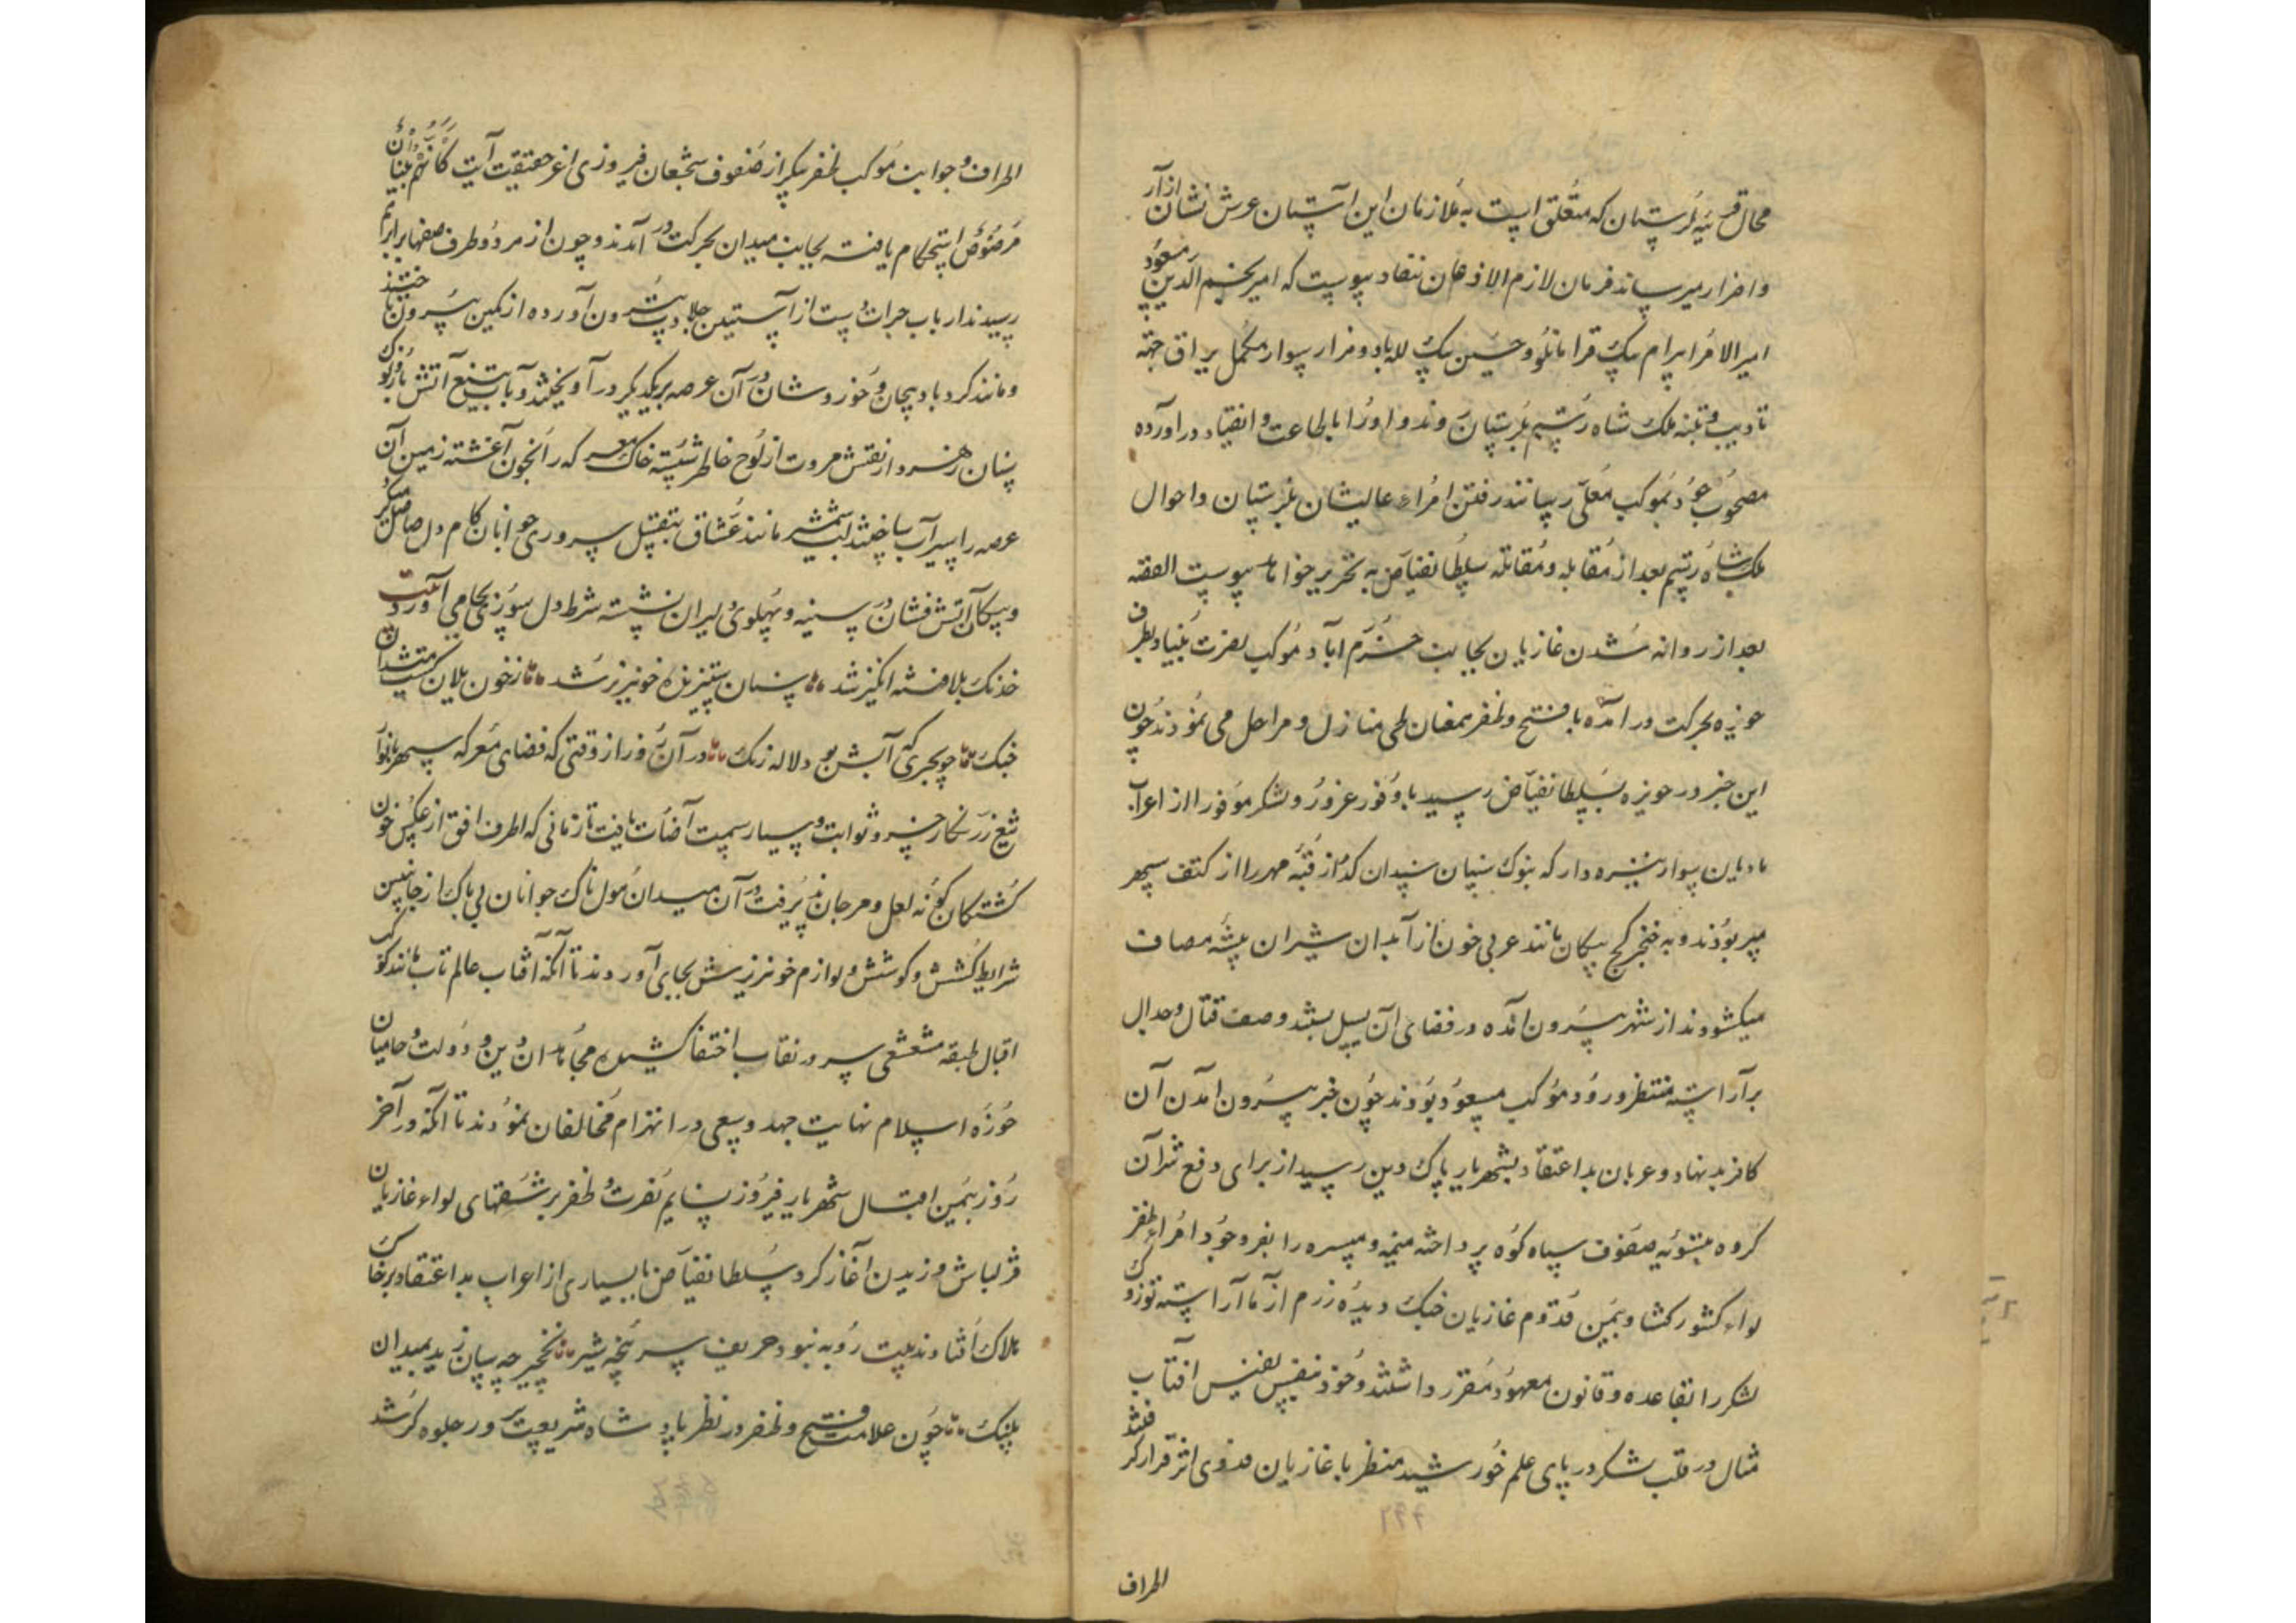 محال قریه لرستان که متعلق است به ملازمان این آستان عرش نشان از آر
و اضرار میرساند فرمان لازم الاذعان نفاد پیوست که امیر نجم الدین مسعود
امیر الامرا بیرام بیک قرامانلو و حسین بیک لله با دو هزار سوار مکمل یراق جهة
تادیب و تنبیه ملک شاه رستم بلرستان روند و او را باطاعت و انقیاد درآورده
مصحوب خود بموکب معلی رسانند رفتن امراء عالیشان بلرستان و احوال
ملک شاه رستم بعد از مقابله و مقاتله سلطان فیاض به تحریر خواهد پیوست القصه
بعد از روانه شدن غازیان بجانب خرم آباد موکب نصرت بنیاد بطرف
حویزه بحرکت درآمده با فتح و ظفر همعنان طی منازل و مراحل می نمودند چون
این خبر در حویزه بسلطان فیاض رسید با وفور غرور و لشکر موفور از اعراب
بادیه این سوار نیزه دار که بنوک سنان سندان گداز قبه مهر را از کتف سپهر
میربودند و به خنجر کج پیکان مانند عربی خون از ابدان شیران بیشه مصاف
میکشودند از شهر بیرون آمده در فضای آن سیل بستند و صف قتال و جدال
برآراسته منتظر ورود موکب مسعود بودند چون خبر بیرون آمدن آن
کافر بد نهاد و عربان بد اعتقاد بشهریار پاک دین رسید از برای دفع شر آن
گروه بتسویه صفوف سپاه کوه پرداخته میمنه و میسره را بفر وجود امراء ظفر
لواء کشور کشا و بیمن قدوم غازیان جنک دیده رزم آزما آراسته توزوک
لشکر را بقاعده و قانون معهود مقرر داشتند و خود بنفس نفیس آفتاب
مثال در قلب لشکر در پای علم خورشید منظر با غازیان فدوی اثر قرار گرفتند
اطراف
اطراف و جوانب موکب ظفر پیکر از صفوف شجعان فیروزی اغر حقیقت آیت کانهم بنیان
مرصوص استحکام یافته بجانب میدان بحرکت درآمدند و چون از هر دو طرف صفها برابر هم
رسیدند ارباب جرات دست از آستین جلادت بیرون آورده از کمین بیرون تاختند
و مانند گردباد پیچان و خروشان در آن عرصه بر یکدیگر درآویختند و با تیغ آتش بار و نوک
سنان زهر دار نقش مروت از لوح خاطر شسته خاک معرکه را بخون آغشته زمین آن
عرصه را سیرآب ساختند لب شمشیر مانند عشاق بتقبیل سر و روی جوانان کام دل حاصل میکرد
و پیکان آتش فشان در سینه و پهلوی دلیران نشسته شرط دل سوزی بجا می آورد بیت
خدنک بلا فتنه انگیز شد سنان ستیزنده خونریز شد ز خون یلان گشت میدان
جنک چو بحری که آبش بود لاله رنک در آن روز از وقتی که فضای معرکه سپهر بانوار
تیغ زرنکار خسرو ثوابت و سیار سمت اضاءت یافت تا زمانی که اطراف افق از عکس خون
کشتکان گونه لعل و مرجان پذیرفت در آن میدان هول ناک جوانان بی باک از جانبین
شرایط کشش و کوشش و لوازم خونریزش بجای آوردند تا آنکه آفتاب عالم تاب مانند کوکب
اقبال طبقه مشعشعی سر در نقاب اختفا کشید مجاهدان دین و دولت و حامیان
حوزه اسلام نهایت جهد و سعی در انهزام مخالفان نمودند تا آنکه در آخر
روز بیمن اقبال شهریار فیروز نسایم نصرت و ظفر بر شقهای لواء غازیان
قزلباش وزیدن آغاز کرد و سلطان فیاض با بسیاری از اعراب بد اعتقاد بر خاک
هلاک افتاد بیت روبه نبود حریف سر پنجه شیر نخجیر چه سان زید بمیدان
پلنک چون علامت فتح و ظفر در نظر پادشاه شریعت پرور جلوه گر شد